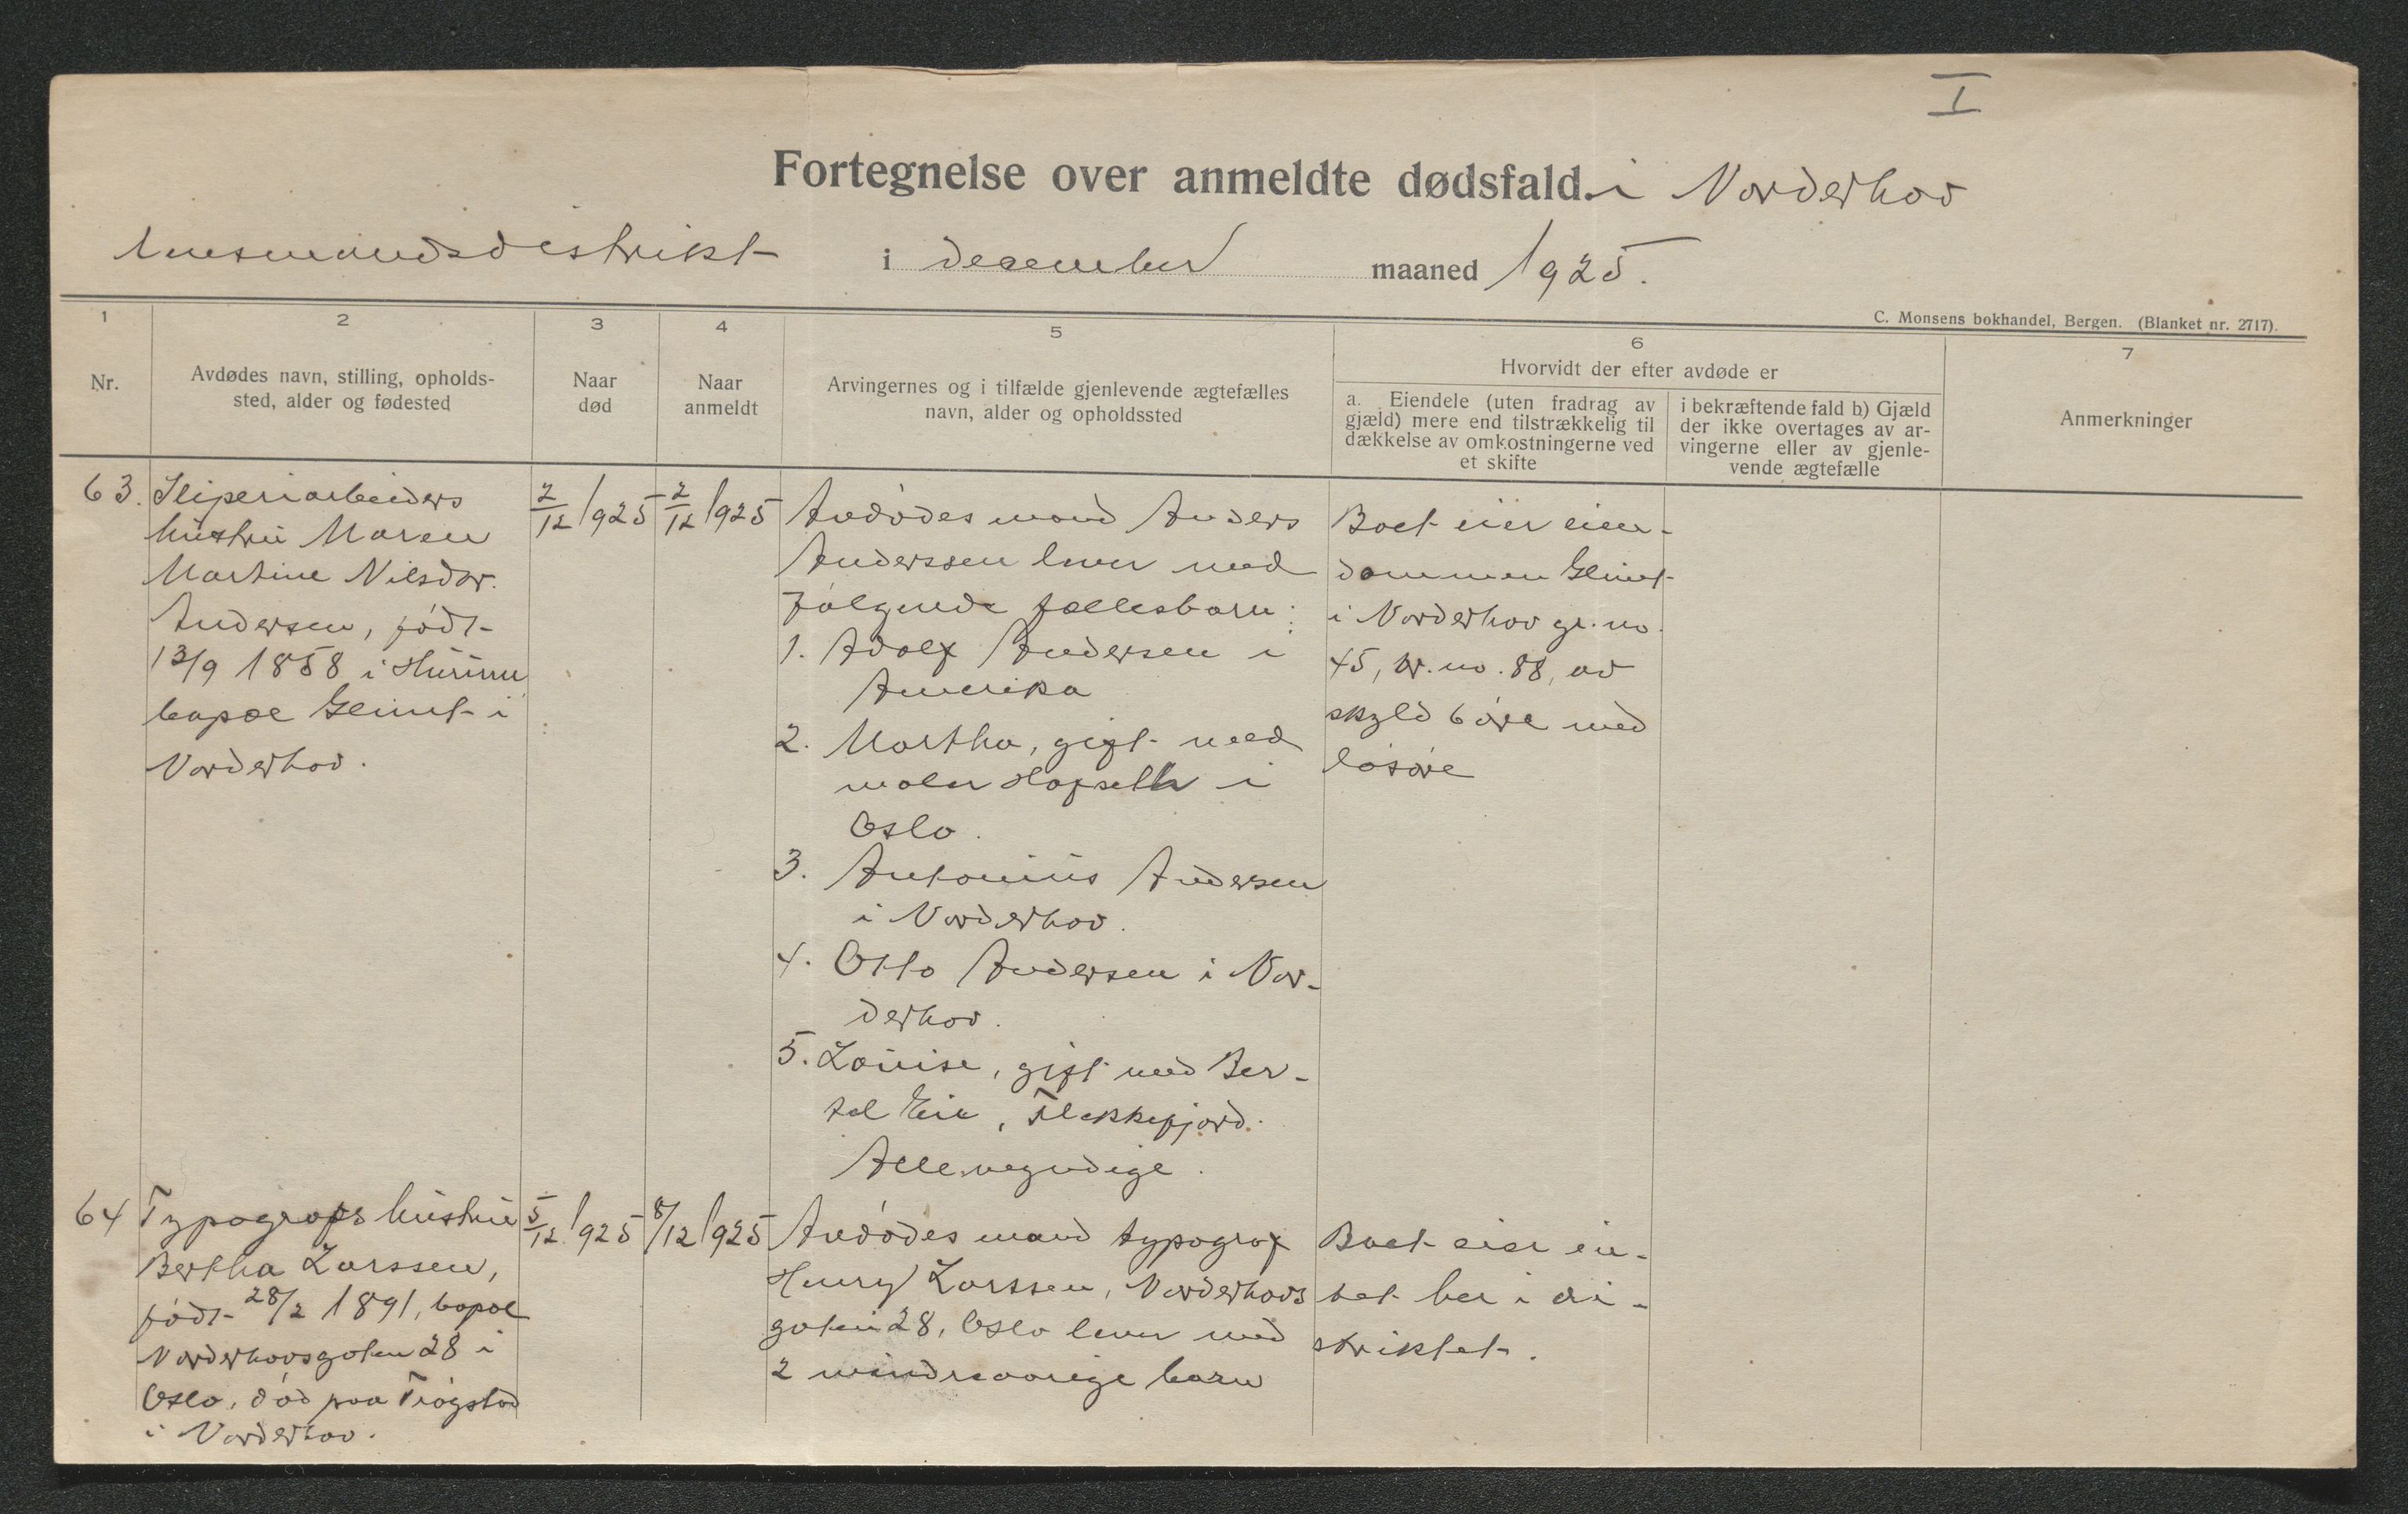 I
Fortegnelse over anmeldte dødsfald. i Norderhov
lensmandsdistrikt i december maaned 1925.
C. Monsens bokhandel, Bergen. (Blanket nr. 2717).
1 2 3 4 5 6 7
Nr.
Avdødes navn, stilling, opholds-
sted, alder og fødested
Naar
død
Naar
anmeldt
Arvingernes og i tilfælde gjenlevende ægtefælles
navn, alder og opholdssted
Hvorvidt der efter avdøde er
a. Eiendele (uten fradrag av
gjæld) mere end tilstrækkelig til
dækkelse av omkostningerne ved
et skifte
i bekræftende fald b) Gjæld
der ikke overtages av ar-
vingerne eller av gjenle-
vende ægtefælle
Anmerkninger
63. Sliperiarbeiders
hustru Maren
Martine Nilsdr.
Andersen, født
13/9 1858 i Hurum
bopæl Glimt i
Norderhov.
2/12 1925
2/12 1925
Avdødes mand Anders
Anderssen lever med
følgende fællesbarn:
1. Adolf Andersen i
Amerika
2. Martha, gift med
maler Hafseth i
Oslo.
3. Antonius Andersen
i Norderhov.
4. Otto Andersen i Nor-
derhov.
5. Louise, gift med Ber-
tel Eie, Flekkefjord.
Alle myndige.
Boet eier eien-
dommen Glimt
i Norderhov gr. no.
45, br. no. 88, av
skyld 6 øre med
løsøre
64 Typografs hustru
Bertha Larssen,
født 28/2 1891, bopæl
Norderhovsgaten 28 i
Oslo, død paa Trøgstad
i Norderhov.
5/12 1925
8/12 1925
Avdødes mand typograf
Henry Larssen, Norderhovs
gaten 28, Oslo lever med
2 mindreaarige barn
Boet eier in-
tet her i di-
striktet.